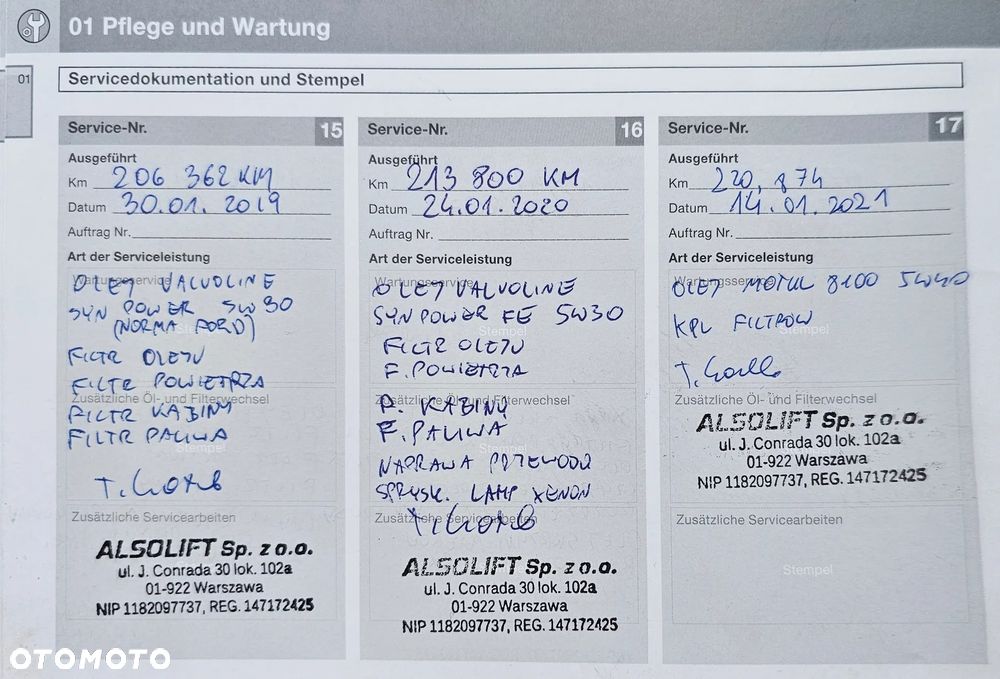 01 Pflege und Wartung
01
Servicedokumentation und Stempel
Service-Nr. 15
Ausgeführt
Km 206 362 KM
Datum 30.01.2019
Auftrag Nr.
Art der Serviceleistung
Wartungsservice
OLEJ VALVOLINE
SYN POWER 5W30
(NORMA FORD)
FILTR OLEJU
FILTR POWIETRZA
Zusätzliche Öl- und Filterwechsel
FILTR KABINY
FILTR PALIWA
Zusätzliche Servicearbeiten
ALSOLIFT Sp. z o.o.
ul. J. Conrada 30 lok. 102a
01-922 Warszawa
NIP 1182097737, REG. 147172425
Service-Nr. 16
Ausgeführt
Km 213 800 KM
Datum 24.01.2020
Auftrag Nr.
Art der Serviceleistung
Wartungsservice
OLEJ VALVOLINE
SYN POWER FE 5W30
Stempel
FILTR OLEJU
F. POWIETRZA
Zusätzliche Öl- und Filterwechsel
F. KABINY
F. PALIWA
NAPRAWA PRZEWODU
SPRYSK. LAMP XENON
Zusätzliche Servicearbeiten
ALSOLIFT Sp. z o.o.
ul. J. Conrada 30 lok. 102a
01-922 Warszawa
NIP 1182097737, REG. 147172425
Service-Nr. 17
Ausgeführt
Km 220,874
Datum 14.01.2021
Auftrag Nr.
Art der Serviceleistung
Wartungsservice
OLEJ MOTUL 8100 5W40
KPL FILTRÓW
Stempel
Zusätzliche Öl- und Filterwechsel
ALSOLIFT Sp. z o.o.
ul. J. Conrada 30 lok. 102a
01-922 Warszawa
NIP 1182097737, REG. 147172425
Zusätzliche Servicearbeiten
Stempel
OTOMOTO